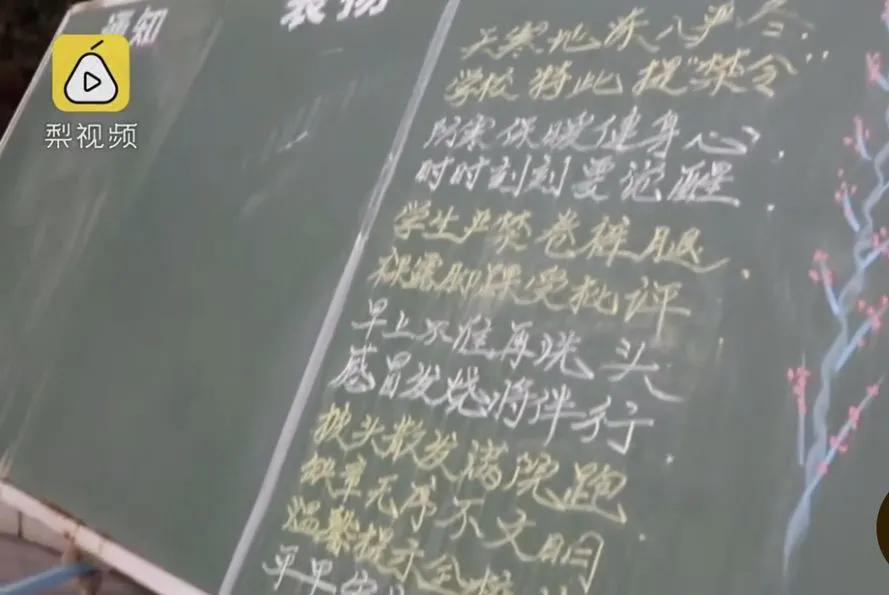 通知
表扬
梨视频
天寒地冻入严冬,
学校特此提"禁令"
防寒保暖健身心,
时时刻刻要觉醒
学生严禁卷裤腿,
裸露脚踝受批评
早上不准再洗头
感冒发烧将伴行
披头散发满院跑
缺章无序不文明
温馨提示全校
平早